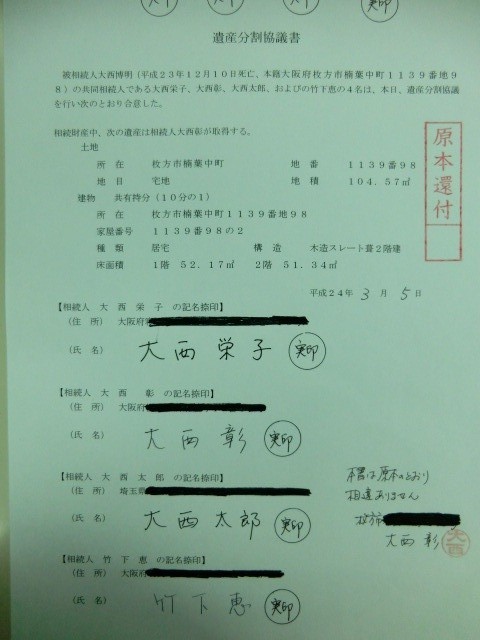 遺産分割協議書
被相続人大西博明(平成23年12月10日死亡、本籍大阪府枚方市楠葉中町1139番地9
8)の共同相続人である大西栄子、大西彰、大西太郎、およびの竹下恵の4名は、本日、遺産分割協議
を行い次のとおり合意した。
相続財産中、次の遺産は相続人大西彰が取得する。
土地
所 在 枚方市楠葉中町 地 番 1139番98
地 目 宅地 地 積 104.57㎡
建物 共有持分(10分の1)
所 在 枚方市楠葉中町1139番地98
家屋番号 1139番98の2
種 類 居宅 構 造 木造スレート葺2階建
床面積 1階 52.17㎡ 2階 51.34㎡
原本還付
平成24年 3 月 5 日
【相続人 大 西 栄 子 の記名捺印】
(住 所) 大阪府
(氏 名) 大西栄子 実印
【相続人 大 西 彰 の記名捺印】
(住 所) 大阪府
(氏 名) 大西彰 実印
【相続人 大 西 太 郎 の記名捺印】
(住 所) 埼玉県
(氏 名) 大西太郎 実印
【相続人 竹 下 恵 の記名捺印】
(住 所) 大阪府
(氏 名) 竹下恵 実印
本書は原本のとおり
相違ありません
枚方市
大西 彰 大西